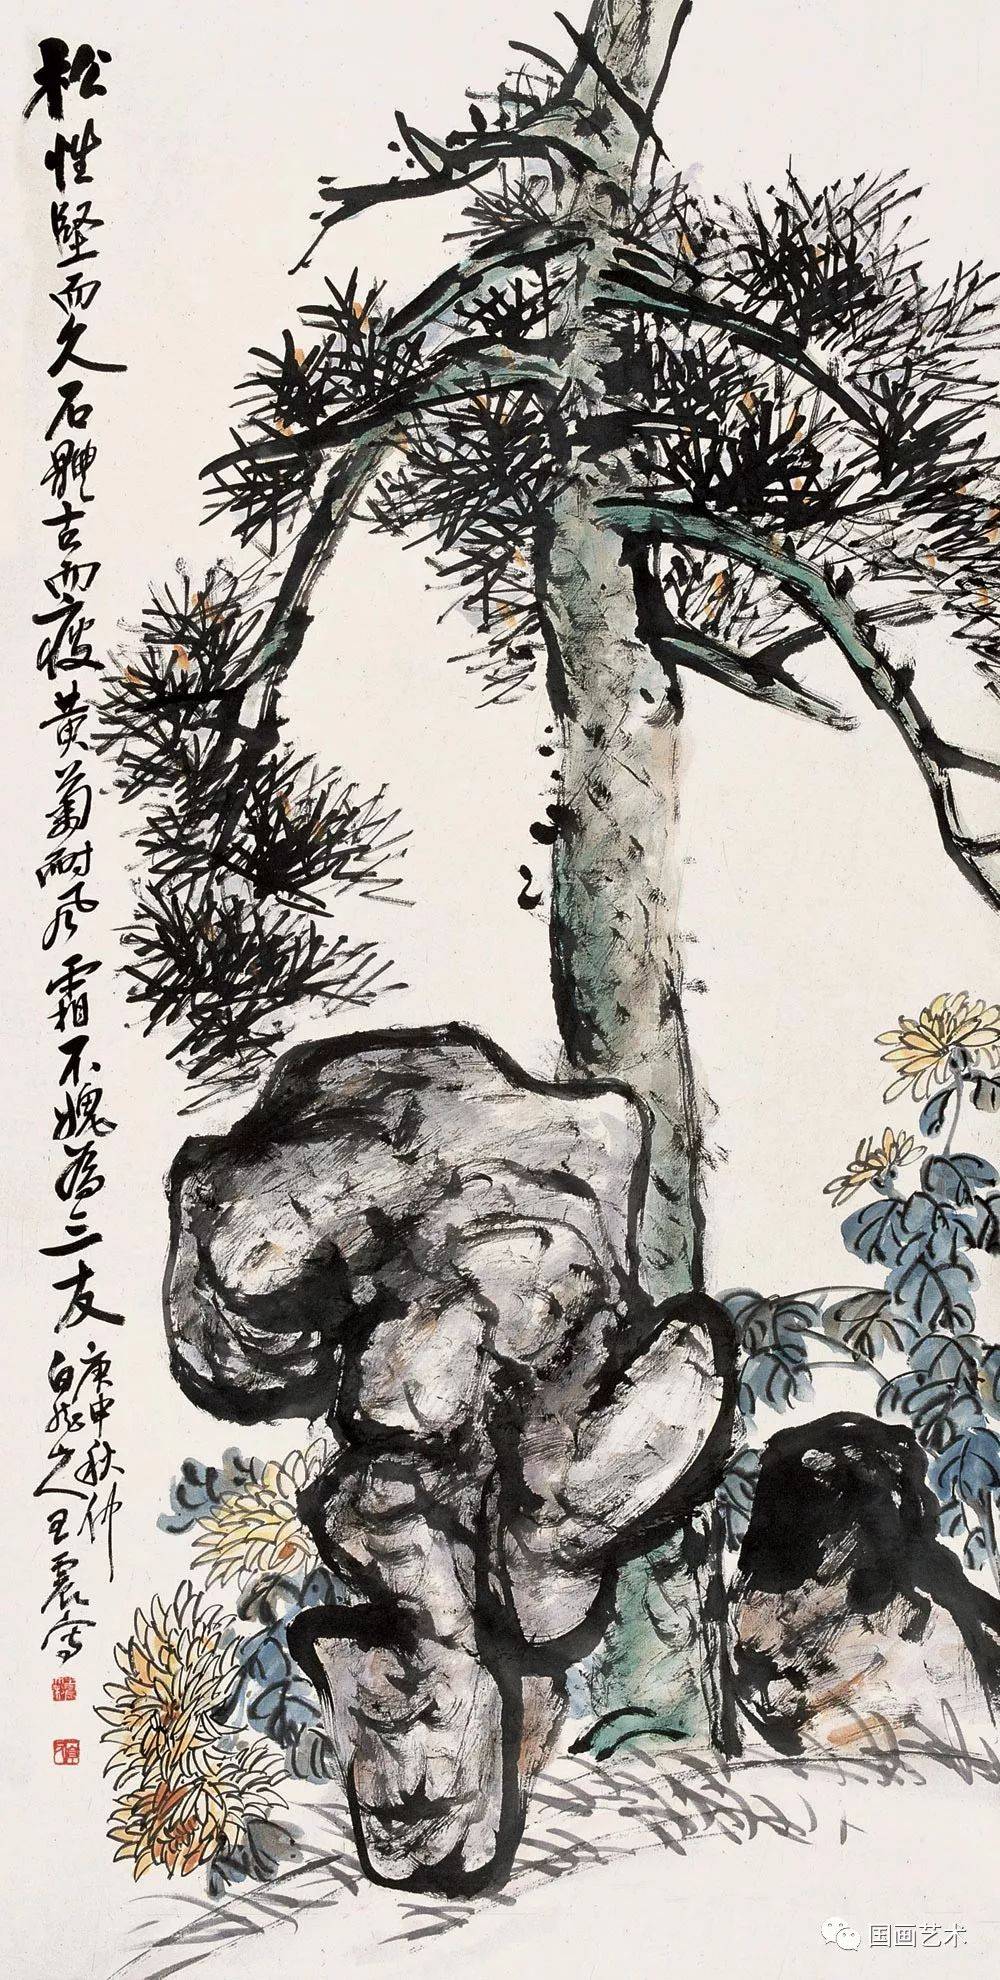 松性堅而久石體古而瘦黄菊耐風霜不媿為三友
庚申秋仲
白龍山人王震寫
国画艺术